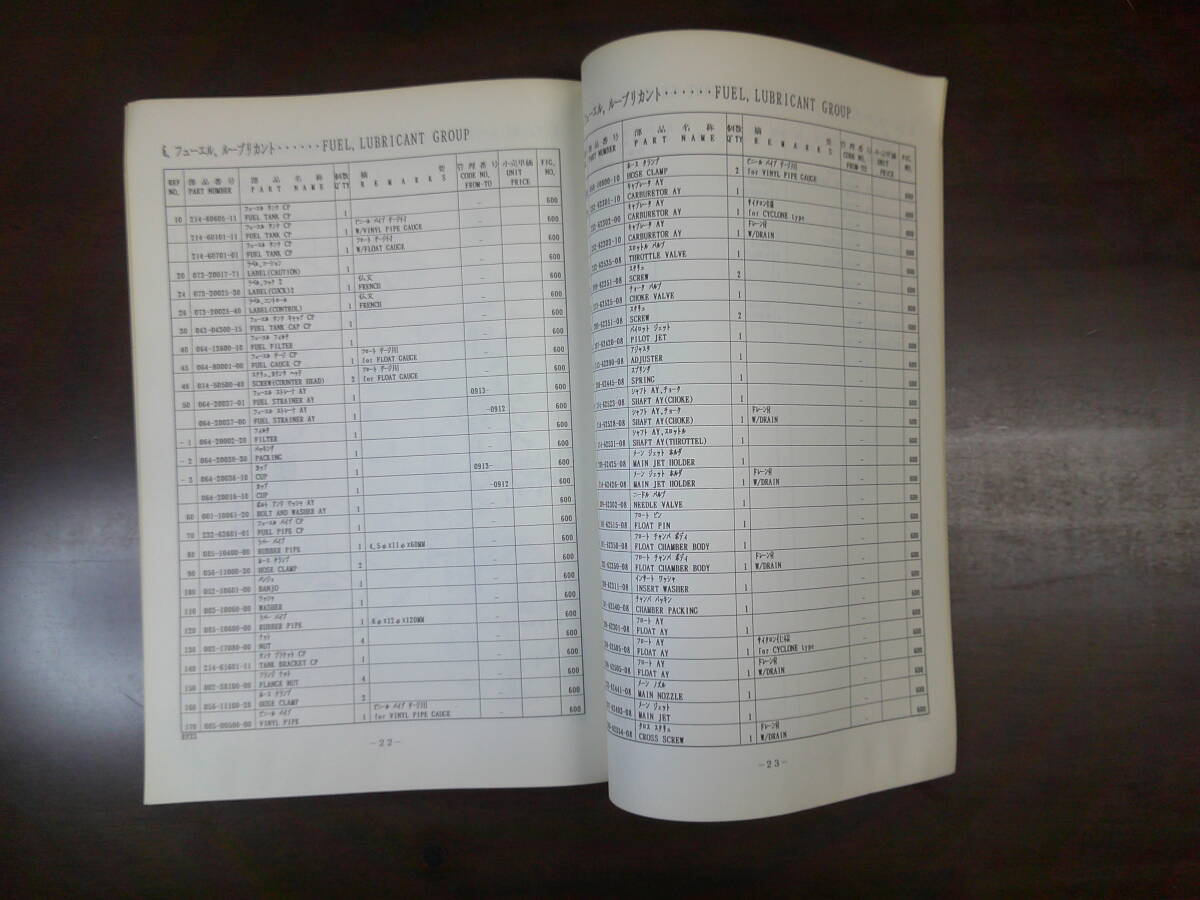 6、フューエル、ルーブリカント・・・・・・FUEL, LUBRICANT GROUP
REF NO. 部品番号 PART NUMBER 部品名称 PART NAME 個数 Q'TY 摘要 REMARKS 管理番号 CODE NO. FROM-TO 小売単価 UNIT PRICE FIG. NO.
フューエル タンク CP
10 214-60606-11 FUEL TANK CP 1 - 600
フューエル タンク CP ビニール パイプ ゲージ付
214-60101-11 FUEL TANK CP 1 W/VINYL PIPE GAUGE - 600
フューエル タンク CP フロート ゲージ付
214-60701-01 FUEL TANK CP 1 W/FLOAT GAUGE - 600
20 072-20017-71 LABEL(CAUTION) 1 - 600
仏文
24 LABEL(COCK)2 1 FRENCH - 600
ラベル、コントロール 仏文
26 073-20025-40 LABEL(CONTROL) 1 FRENCH - 600
フューエル タンク キャップ CP
30 043-04300-15 FUEL TANK CAP CP 1 - 600
フューエル フィルタ
40 064-12600-10 FUEL FILTER 1 - 600
フューエル ゲージ CP フロート ゲージ用
45 064-80001-00 FUEL GAUGE CP 1 for FLOAT GAUGE - 600
フロート ゲージ用
46 014-50500-40 SCREW(COUNTER HEAD) 2 for FLOAT GAUGE - 600
フューエル ストレーナ AY
50 064-20037-01 FUEL STRAINER AY 1 0913- 600
フューエル ストレーナ AY
064-20037-00 FUEL STRAINER AY 1 -0912 600
フィルタ
-1 064-20002-20 FILTER 1 - 600
パッキング
-2 064-20030-30 PACKING 1 - 600
カップ
-3 064-20036-10 CUP 1 0913- 600
カップ
064-20016-10 CUP 1 -0912 600
ボルト アンド ワッシャ AY
60 001-10061-20 BOLT AND WASHER AY 1 - 600
フューエル パイプ CP
70 232-62601-01 FUEL PIPE CP 1 - 600
ラバー パイプ
80 085-10400-00 RUBBER PIPE 1 4.5φx11φx60MM - 600
ホース クランプ
90 056-11000-20 HOSE CLAMP 2 - 600
バンジョ
100 052-10601-00 BANJO 1 - 600
ワッシャ
110 003-10060-00 WASHER 1 - 600
ラバー パイプ
120 085-10600-00 RUBBER PIPE 1 6φx12φx120MM - 600
ナット
130 002-17080-00 NUT 4 - 600
タンク ブラケット CP
140 214-61601-11 TANK BRACKET CP 1 - 600
フランジ ナット
150 002-38100-00 FLANGE NUT 4 - 600
ホース クランプ
160 056-11100-20 HOSE CLAMP 2 - 600
ビニール パイプ ビニール パイプ ゲージ用
170 085-00500-00 VINYL PIPE 1 for VINYL PIPE GAUGE - 600
-22-
フューエル、ルーブリカント・・・・・・FUEL, LUBRICANT GROUP
部品番号 PART NUMBER 部品名称 PART NAME 個数 Q'TY 摘要 REMARKS 管理番号 CODE NO. FROM-TO 小売単価 UNIT PRICE FIG. NO.
ホース クランプ ビニール パイプ ゲージ用
HOSE CLAMP 2 for VINYL PIPE GAUGE - 600
キャブレータ AY
-62301-10 CARBURETOR AY 1 - 600
キャブレータ AY サイクロン仕様
-62302-00 CARBURETOR AY 1 for CYCLONE type - 600
キャブレータ AY ドレーン付
-62303-10 CARBURETOR AY 1 W/DRAIN - 600
スロットル バルブ
-62535-08 THROTTLE VALVE 1 - 600
スクリュ
-62351-08 SCREW 2 - 600
チョーク バルブ
-62525-08 CHOKE VALVE 1 - 600
スクリュ
-62351-08 SCREW 2 - 600
パイロット ジェット
-62420-08 PILOT JET 1 - 600
アジャスタ
-62390-08 ADJUSTER 1 - 600
スプリング
-62445-08 SPRING 1 - 600
シャフト AY、チョーク
-62523-08 SHAFT AY(CHOKE) 1 - 600
シャフト AY、チョーク ドレーン付
-62528-08 SHAFT AY(CHOKE) 1 W/DRAIN - 600
シャフト AY、スロットル
-62531-08 SHAFT AY(THROTTEL) 1 - 600
メーン ジェット ホルダ
-62425-08 MAIN JET HOLDER 1 - 600
メーン ジェット ホルダ ドレーン付
-62426-08 MAIN JET HOLDER 1 W/DRAIN - 600
ニードル バルブ
-62502-08 NEEDLE VALVE 1 - 600
フロート ピン
-62515-08 FLOAT PIN 1 - 600
フロート チャンバ ボディ
-62350-08 FLOAT CHAMBER BODY 1 - 600
フロート チャンバ ボディ ドレーン付
-62350-08 FLOAT CHAMBER BODY 1 W/DRAIN - 600
インサート ワッシャ
-62311-08 INSERT WASHER 1 - 600
チャンバ パッキン
-62540-08 CHAMBER PACKING 1 - 600
フロート AY
-62501-08 FLOAT AY 1 - 600
フロート AY サイクロン仕様
-62505-08 FLOAT AY 1 for CYCLONE type - 600
フロート AY ドレーン付
-62505-08 FLOAT AY 1 W/DRAIN - 600
メーン ノズル
-62441-08 MAIN NOZZLE 1 - 600
メーン ジェット
-62403-08 MAIN JET 1 - 600
クロス スクリュ ドレーン付
-62354-08 CROSS SCREW 1 W/DRAIN - 600
-23-